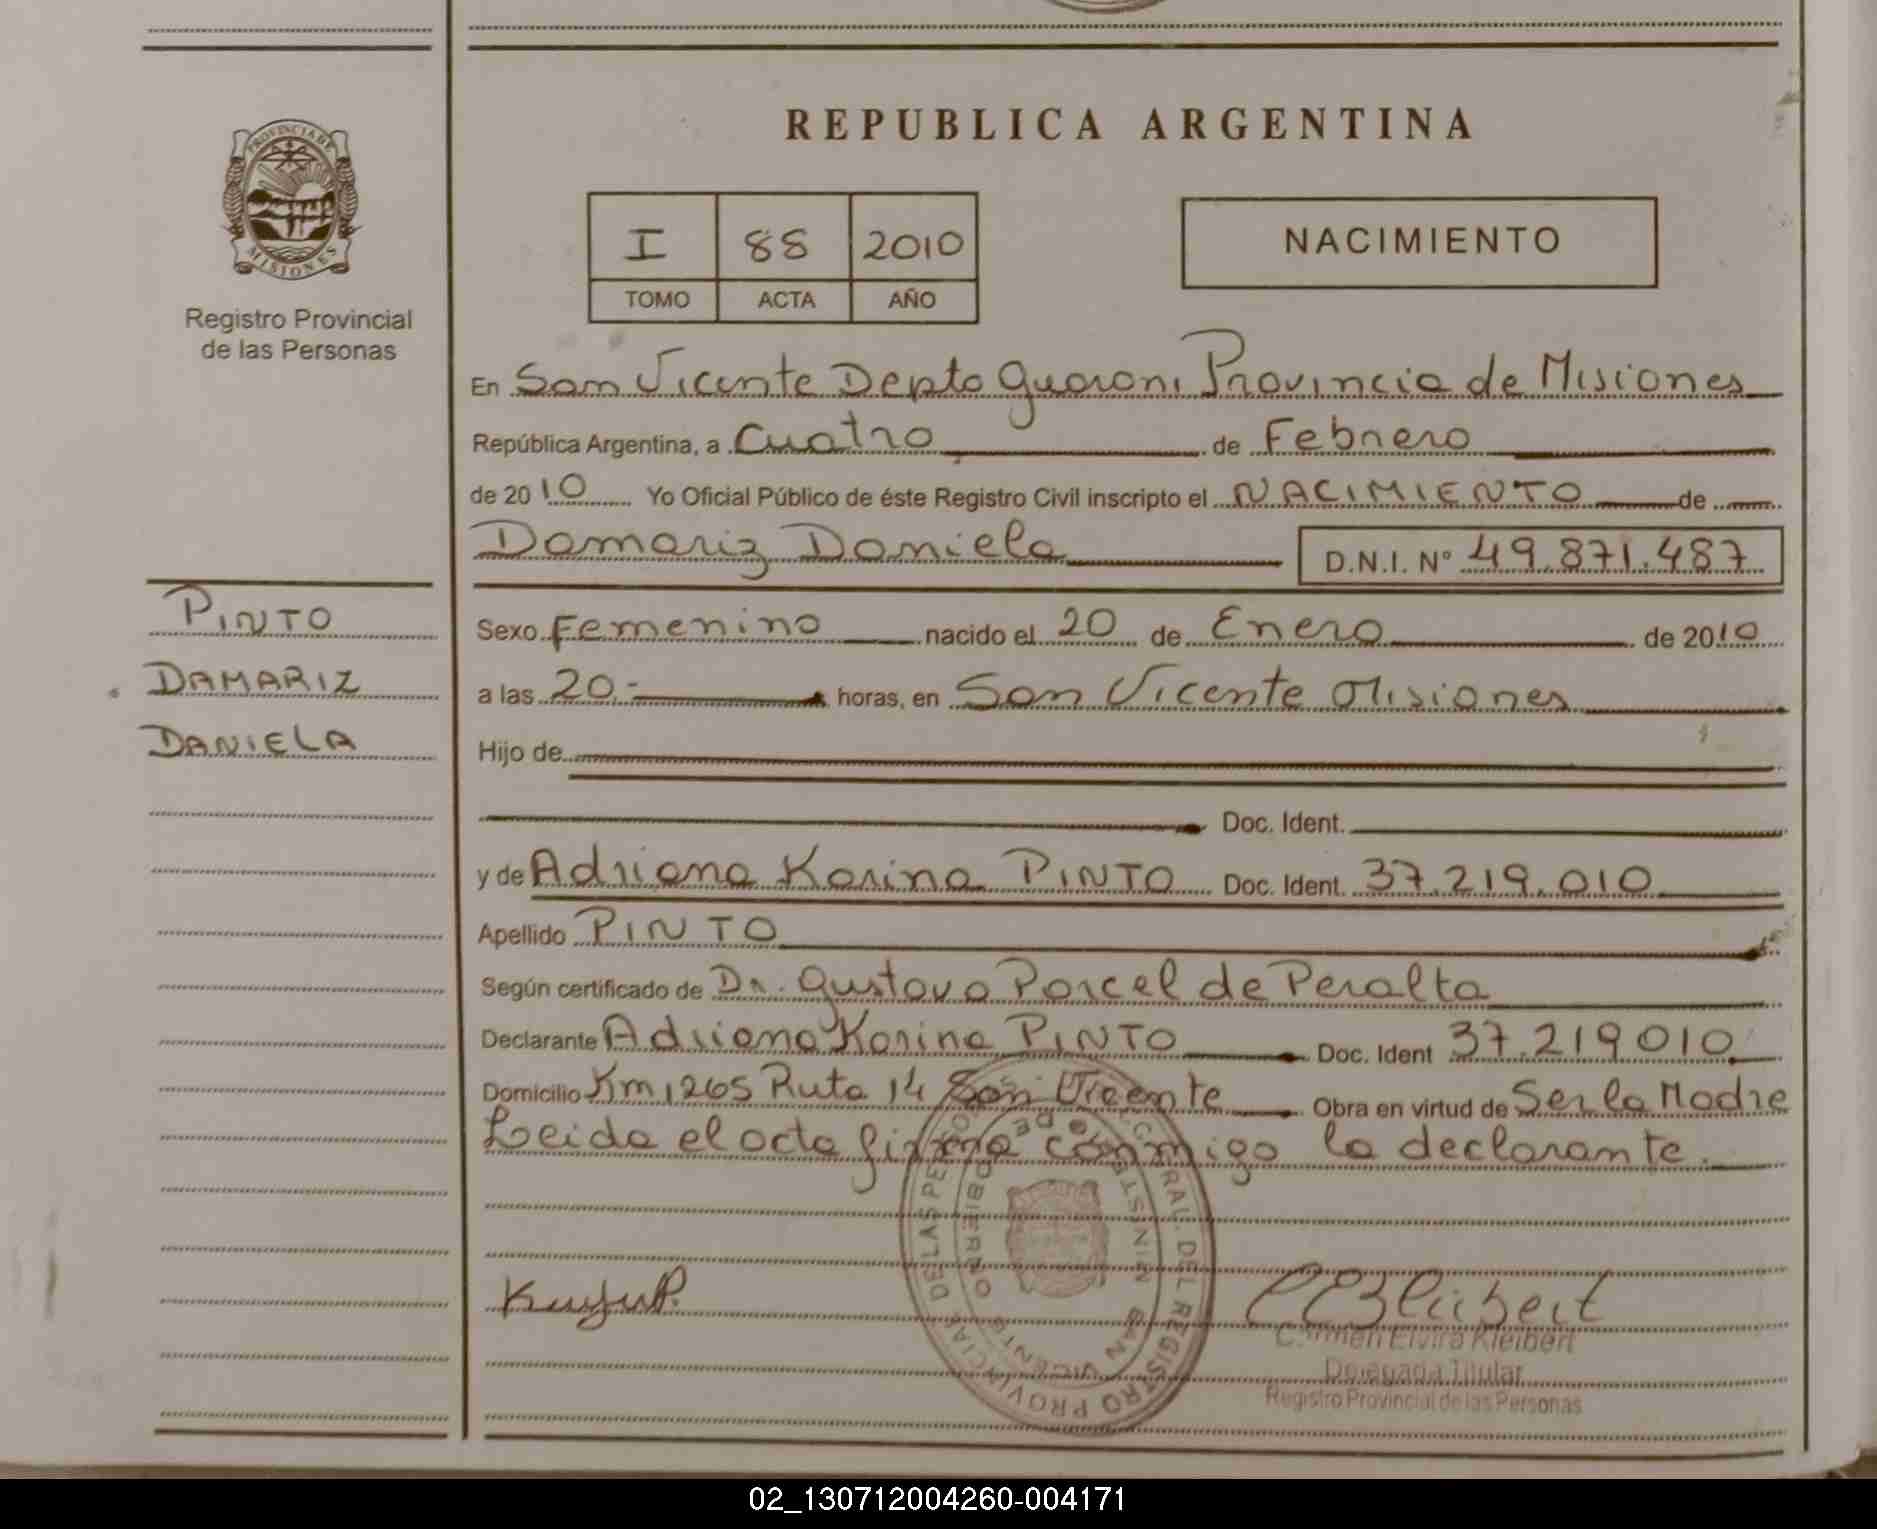 REPUBLICA ARGENTINA
PROVINCIA DE
MISIONES
Registro Provincial
de las Personas
I 88 2010
TOMO ACTA AÑO
NACIMIENTO
En San Vicente Depto Guarani Provincia de Misiones
República Argentina, a Cuatro de Febrero
de 2010 Yo Oficial Público de éste Registro Civil inscripto el NACIMIENTO de
Damariz Daniela D.N.I. Nº 49.871.487
PINTO
DAMARIZ
DANIELA
Sexo Femenino nacido el 20 de Enero de 2010
a las 20.- horas, en San Vicente Misiones
Hijo de
Doc. Ident.
y de Adriana Karina PINTO Doc. Ident. 37.219.010
Apellido PINTO
Según certificado de Dr. Gustavo Porcel de Peralta
Declarante Adriana Karina PINTO Doc. Ident 37.219010
Domicilio Km 1265 Ruta 14 San Vicente Obra en virtud de Ser la Madre
Leida el acta firma conmigo la declarante.
Carmen Elvira Kleibert
Delegada Titular
Registro Provincial de las Personas
02_130712004260-004171